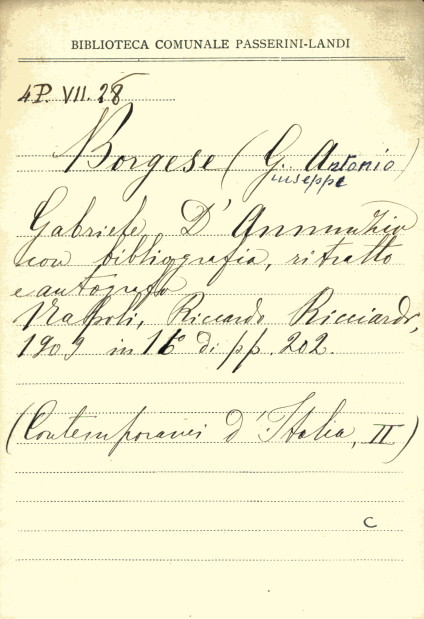 BIBLIOTECA COMUNALE PASSERINI-LANDI
4P. VII. 28
Borgese (Giuseppe Antonio)
Gabriele D'Annunzio
con bibliografia, ritratto
e autografo
Napoli, Riccardo Ricciardi,
1909 in 16° di pp. 202.
(Contemporanei d'Italia, II)
C